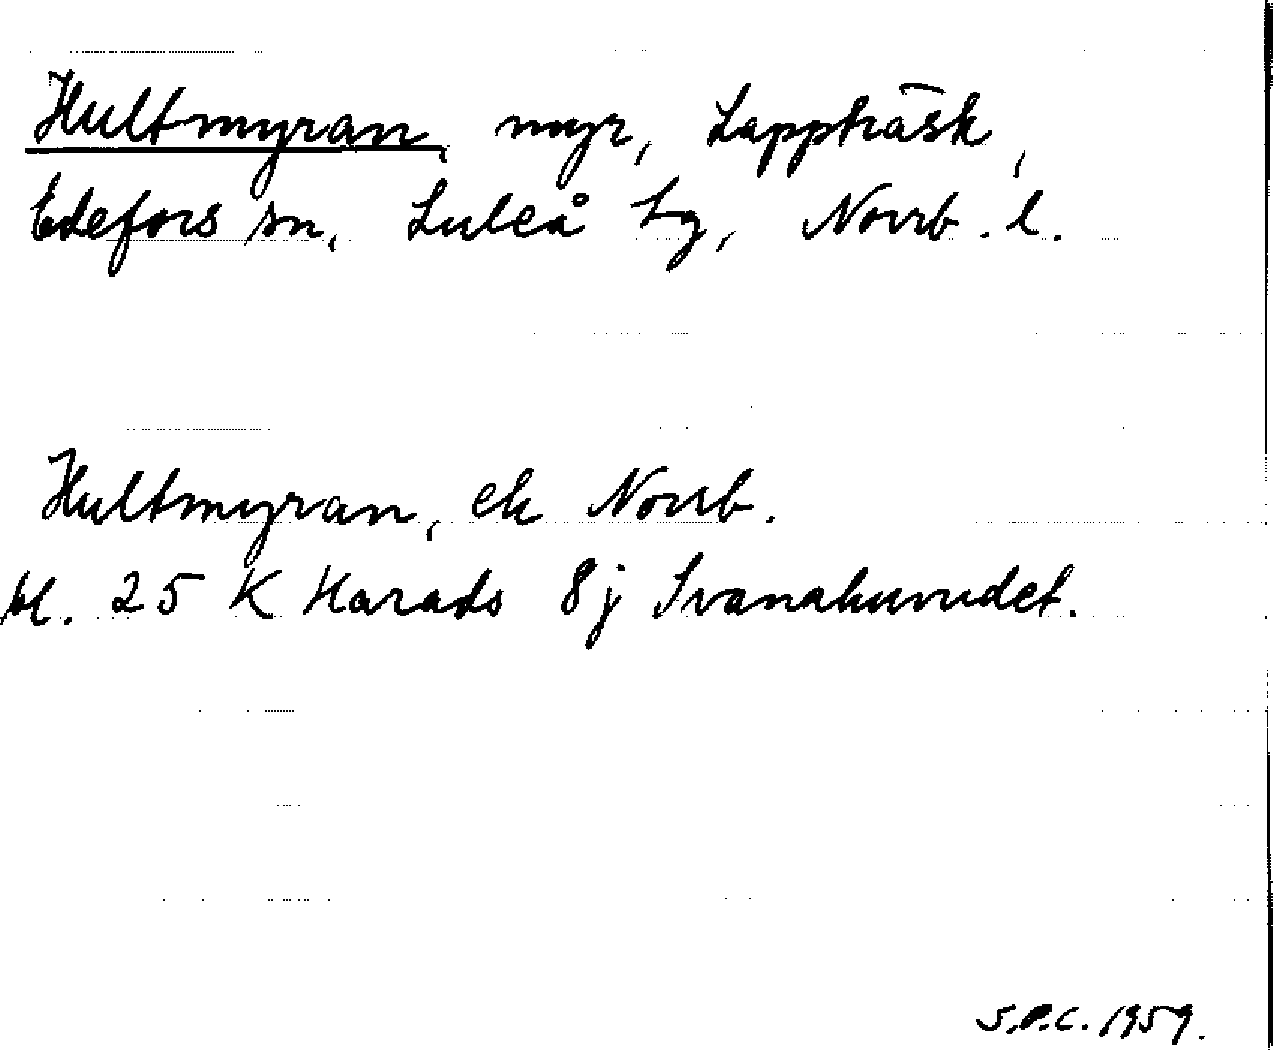 Hultmyran, myr, Lappträsk,
Edefors sn, Luleå tg, Norrb. l.
Hultmyran, ek Norrb.
bl. 25 K Harads 8j Svanahuvudet.
S.P.C. 1959.